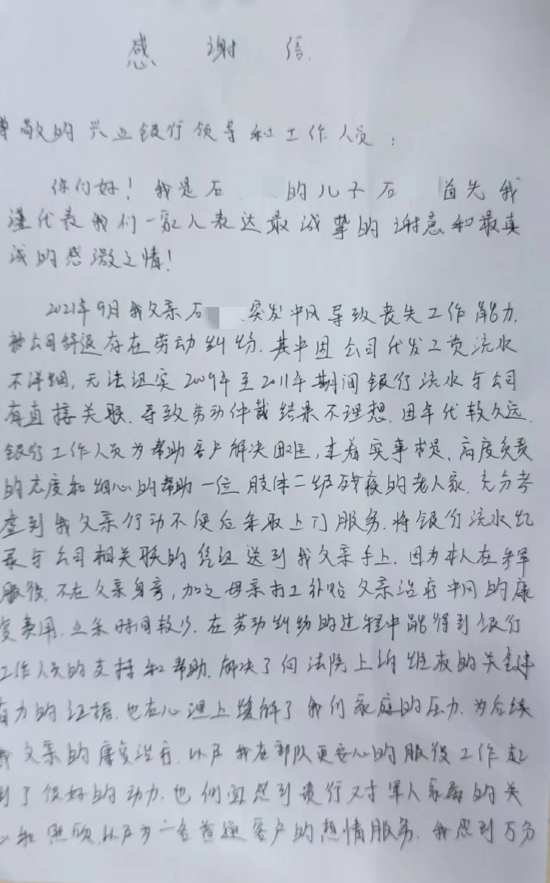 感谢信
尊敬的兴业银行领导和工作人员：
你们好！我是石 的儿子石 首先我
谨代表我们一家人表达最诚挚的谢意和最真
诚的感激之情！
2021年9月我父亲石 突发中风导致丧失工作能力，
被公司辞退存在劳动纠纷。其中因公司代发工资流水
不详细，无法证实2009年至2011年期间银行流水与公司
有直接关联，导致劳动仲裁结果不理想。因年代较久远，
银行工作人员为帮助客户解决困难，本着实事求是、高度负责
的态度和细心的帮助一位肢体二级残疾的老人家，充分考
虑到我父亲行动不便后采取上门服务，将银行流水
与公司相关联的凭证送到我父亲手上。因为本人在参军
服役，不在父亲身旁，加之母亲打工补贴父亲治疗中风的康
复费用，业余时间较少。在劳动纠纷的过程中能得到银行
工作人员的支持和帮助，解决了向法院上诉的关键
有力的证据，也在心理上缓解了我们家庭的压力，为后续
我父亲的康复治疗，以及我在部队更安心的服役工作起
到了很好的动力。也侧面感到贵行对军人家属的关
心和照顾，以及为一名普通客户的热情服务，我感到万分